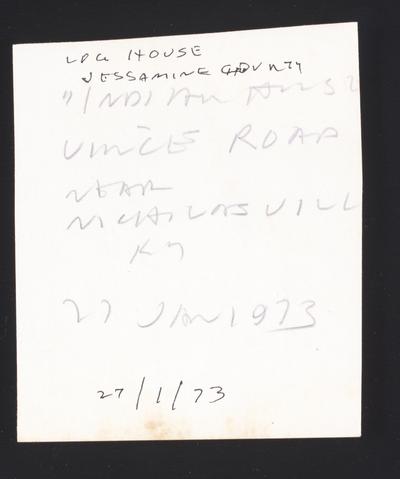 LOG HOUSE
JESSAMINE COUNTY
"INDIAN
VINCE ROAD
NEAR
NICHOLASVILL
KY
27 JAN 1973
27/1/73